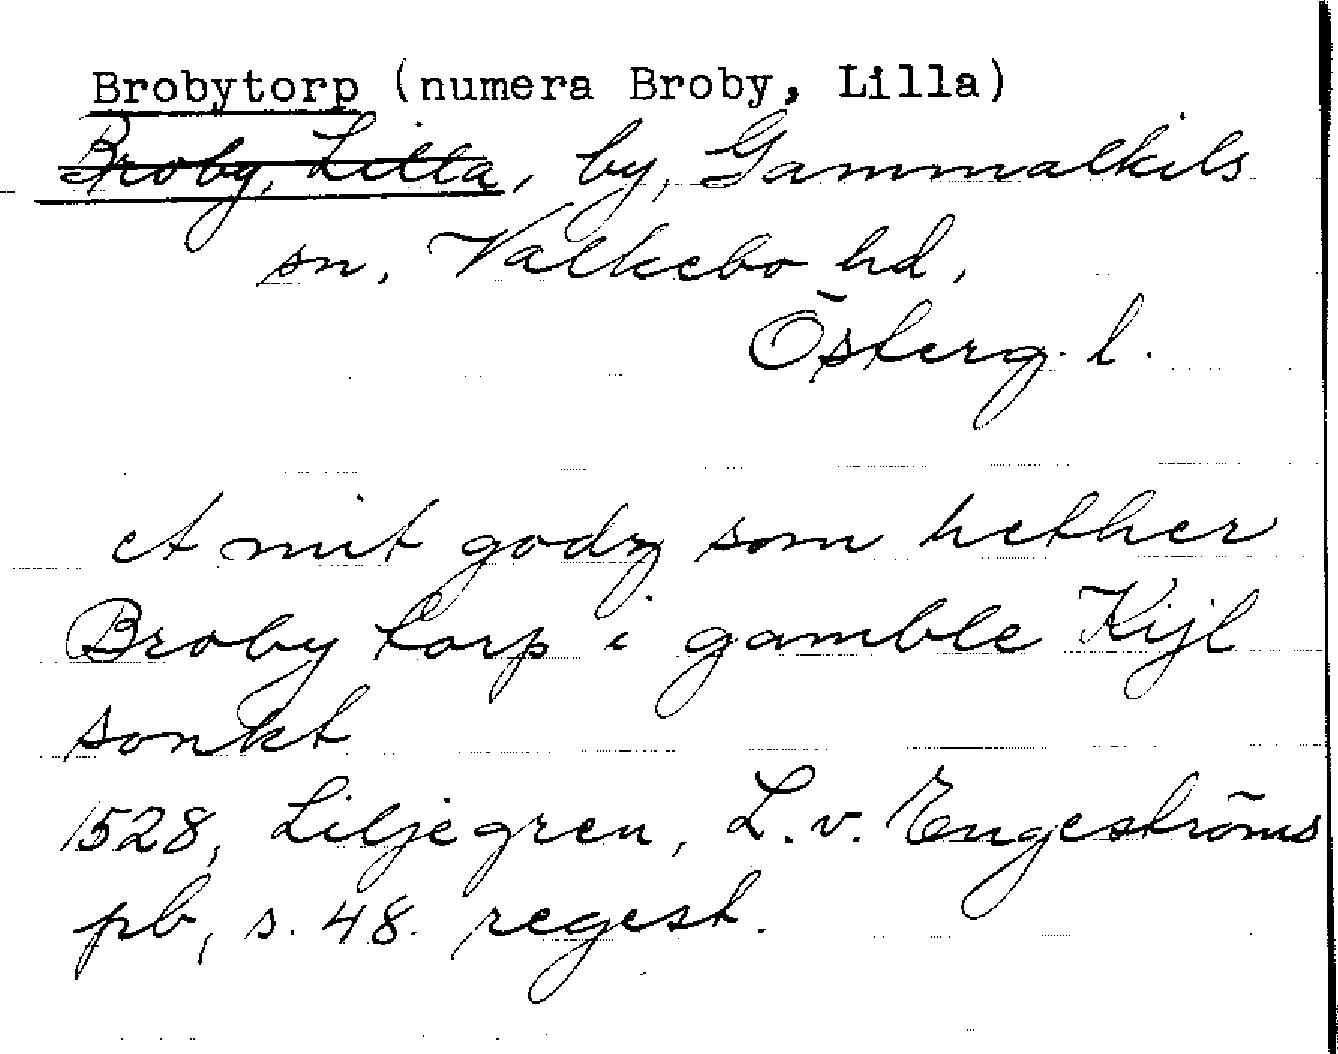 Brobytorp (numera Broby, Lilla)
Broby, Lilla, by, Gammalkils
sn, Valkebo hd,
Österg. l.
et mit godz som hether
Broby torp i gamble Kijl
sonkt
1528, Liljegren, L. v. Engeströms
pb, s. 48. regest.